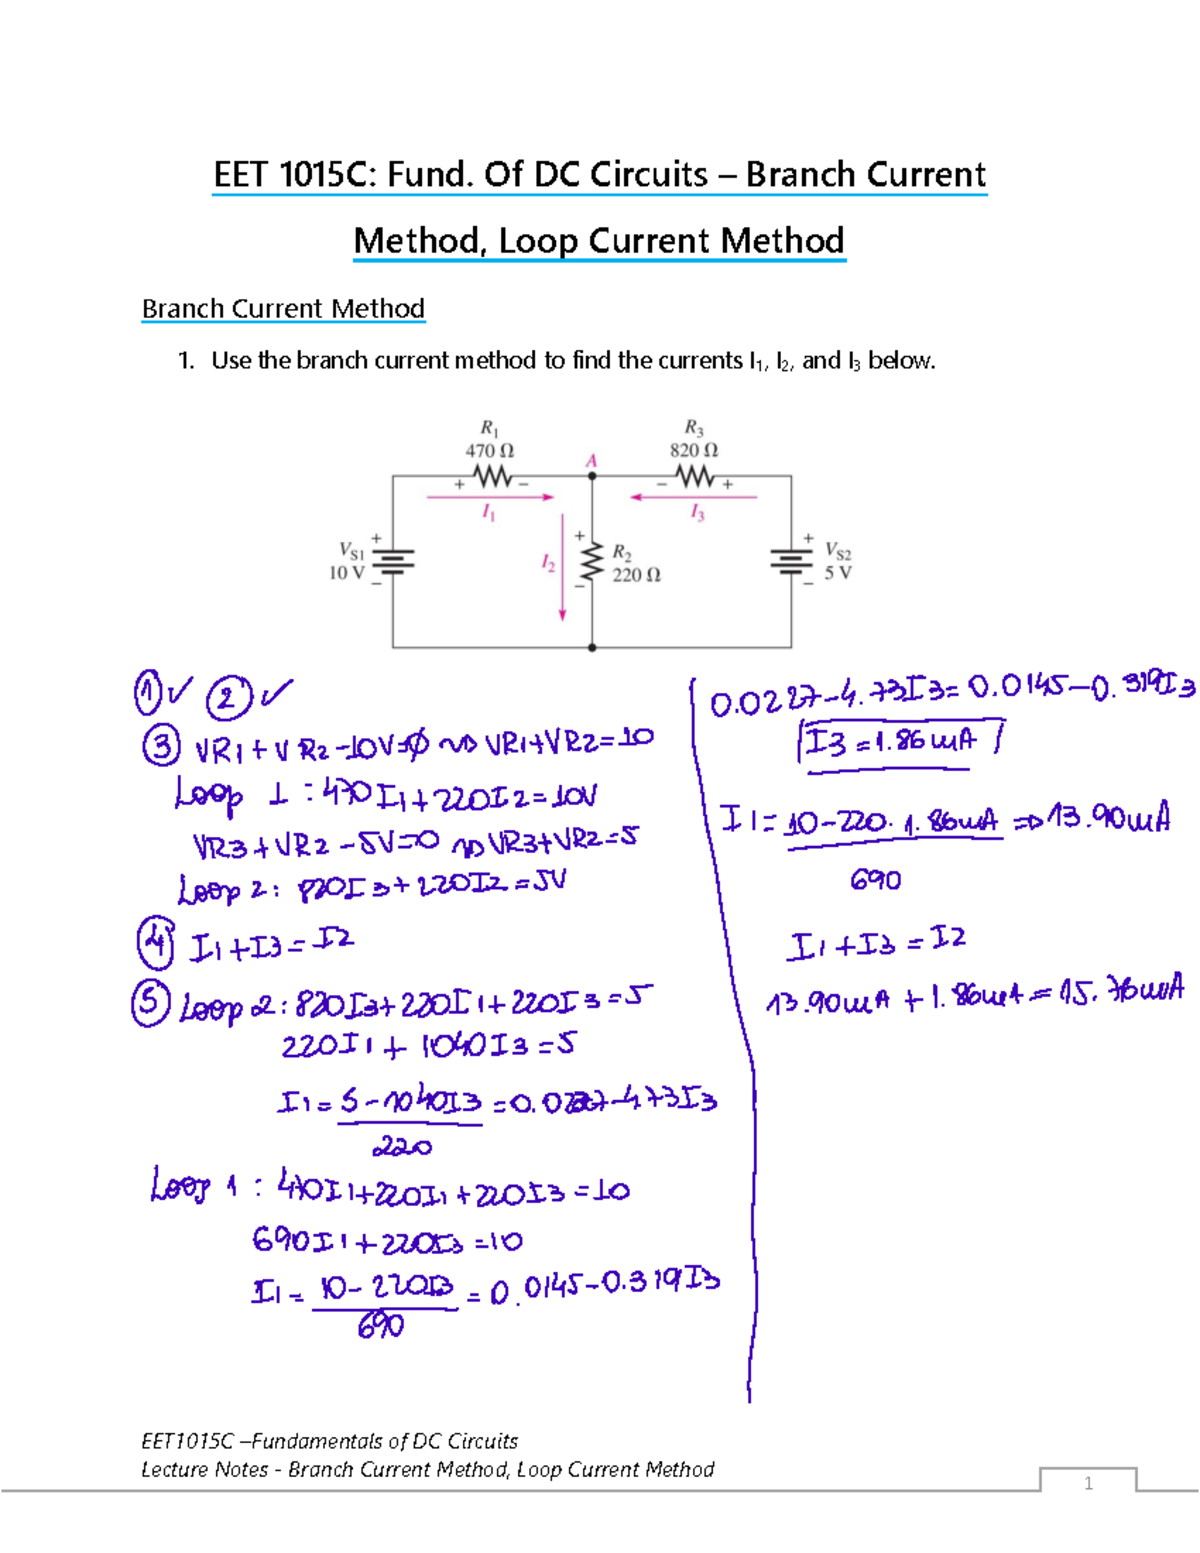 EET 1015C: Fund. Of DC Circuits – Branch Current
Method, Loop Current Method
Branch Current Method
1. Use the branch current method to find the currents I₁, I₂, and I₃ below.
R₁
470 Ω
R₃
820 Ω
A
+ − − +
I₁
I₃
VS1
10 V
+
−
I₂
+
−
R₂
220 Ω
+
−
VS2
5 V
① ✓ ② ✓
③ VR1 + VR2 - 10V = 0 ⇝ VR1 + VR2 = 10
Loop 1 : 470 I1 + 220 I2 = 10V
VR3 + VR2 - 5V = 0 ⇝ VR3 + VR2 = 5
Loop 2 : 820 I3 + 220 I2 = 5V
④ I1 + I3 = I2
⑤ Loop 2 : 820 I3 + 220 I1 + 220 I3 = 5
220 I1 + 1040 I3 = 5
I1 = 5 - 1040 I3 = 0.0227 - 4.73 I3
220
Loop 1 : 470 I1 + 220 I1 + 220 I3 = 10
690 I1 + 220 I3 = 10
I1 = 10 - 220 I3 = 0.0145 - 0.319 I3
690
0.0227 - 4.73 I3 = 0.0145 - 0.319 I3
I3 = 1.86 mA
I1 = 10 - 220 . 1.86 mA ⇒ 13.90 mA
690
I1 + I3 = I2
13.90 mA + 1.86 mA = 15.76 mA
EET1015C –Fundamentals of DC Circuits
Lecture Notes - Branch Current Method, Loop Current Method
1